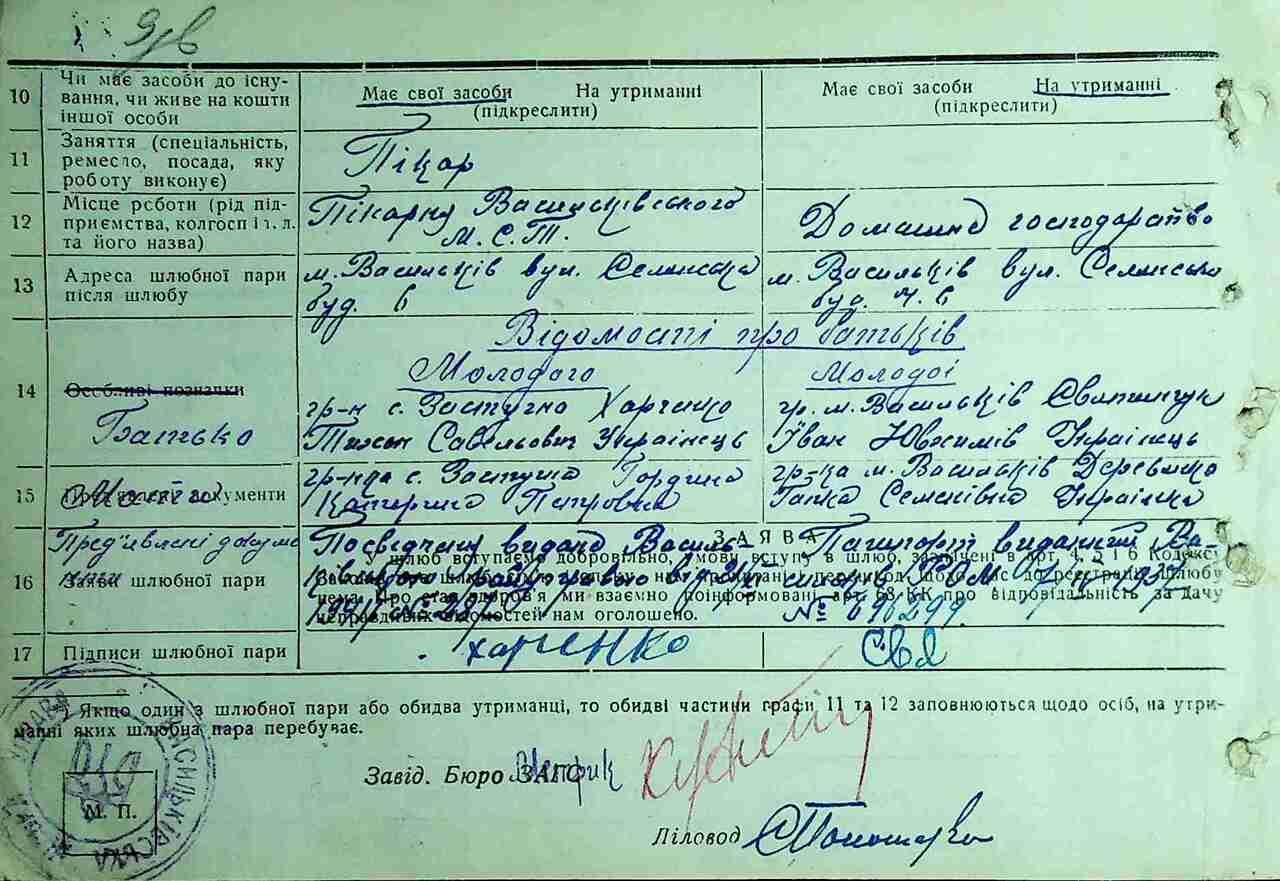 10 Чи має засоби до існу-
вання, чи живе на кошти
іншої особи
Має свої засоби На утриманні
(підкреслити)
Має свої засоби На утриманні
(підкреслити)
11 Заняття (спеціальність,
ремесло, посада, яку
роботу виконує)
Пікар
12 Місце роботи (рід під-
приємства, колгосп і т. п.
та його назва)
Пікарня Васильківського
М.С.Т.
Домашнє господарство
13 Адреса шлюбної пари
після шлюбу
м. Васильків вул. Селянська
буд. 6
м. Васильків вул. Селянська
буд. ч. 6
Відомості про батьків
Молодого
Молодої
14 Особливі позначки
Батько
гр-н с. Застугно Харченко
Тихон Савельович Українець
гр. м. Васильків
Іван Ювхимів Українець
15 документи
Мати
гр-нка с. Застугна Гордина
Катерина Петровна
гр-ка м. Васильків Деревянко
Ганка Семенівна Українка
Пред'явлені докуме
нти
Посвідчення видано Василь-
1941 №
Пашпорт виданий Ва-
№ 696299
16 Заяви шлюбної пари
ЗАЯВА
У шлюб вступаємо добровільно, умови вступу в шлюб, зазначені в арт. 4, 5 і 6 Кодексу
нема. Про стан здоров'я ми взаємно поінформовані, арт. 68 КК про відповідальність за дачу
неправдивих відомостей нам оголошено.
17 Підписи шлюбної пари
харченко
Свя
Якщо один з шлюбної пари або обидва утриманці, то обидві частини графи 11 та 12 заповнюються щодо осіб, на утри-
манні яких шлюбна пара перебуває.
Завід. Бюро ЗАГС
М. П.
ВАСИЛЬКІВСЬКА
Діловод